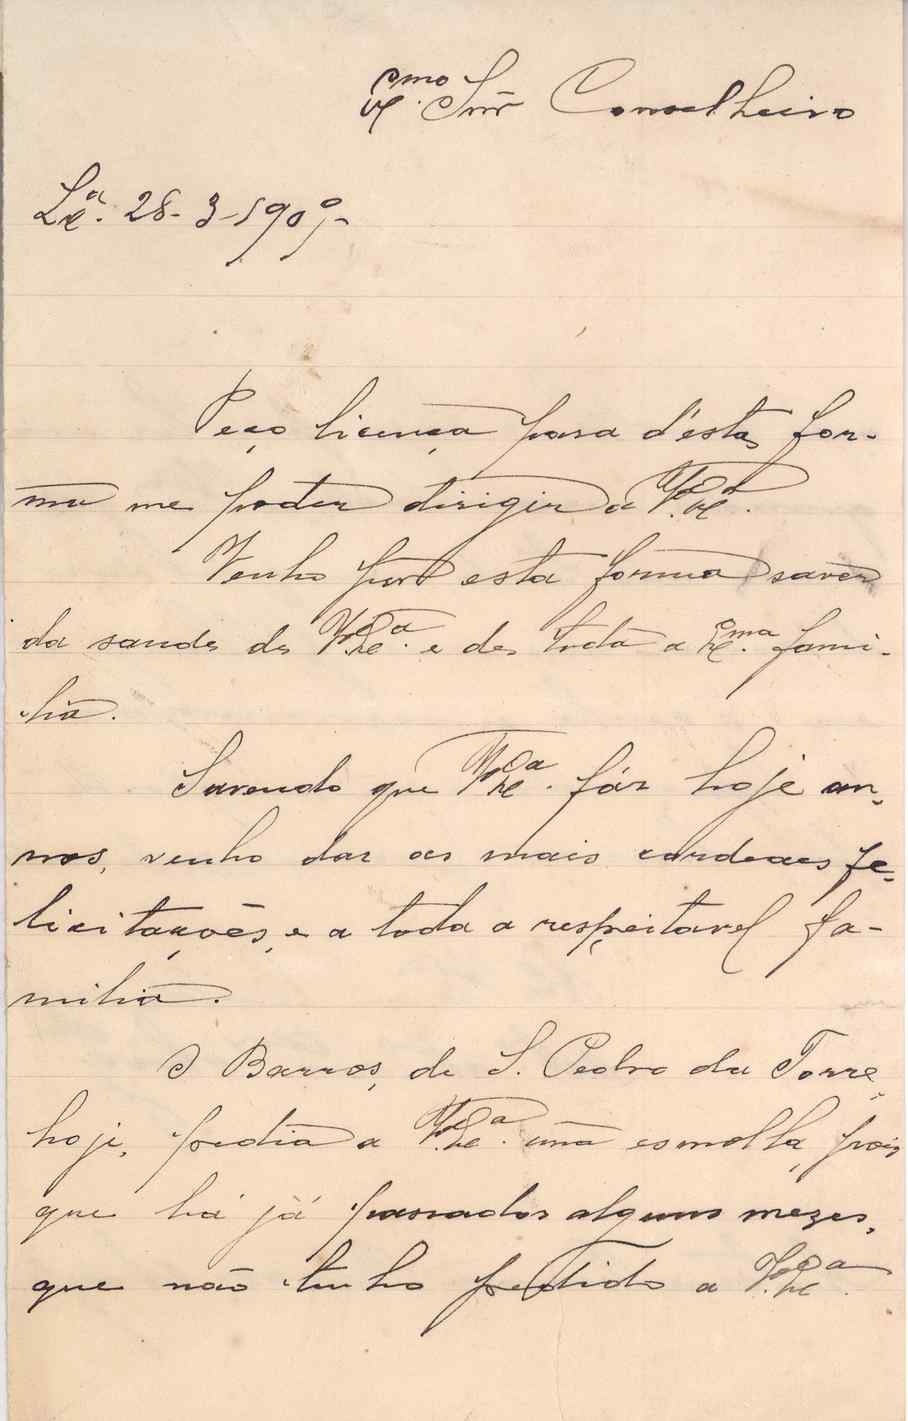 Exmo. Snr Conselheiro
Lxa. 28-3-1909-
Peço licença para d'esta for-
ma me poder dirigir a V. Exa.
Venho por esta forma saver
da saude de V. Exa. e de toda a Exma. fami-
lia.
Savendo que V. Exa. fáz hoje an-
nos, venho dar as mais cordeaes fe-
licitações, e a toda a respeitavel fa-
milia.
O Barros, de S. Pedro da Torre,
hoje, pedia a V. Exa. uma esmolla, pois
que há já passados alguns mezes,
que não tenho pedido a V. Exa.